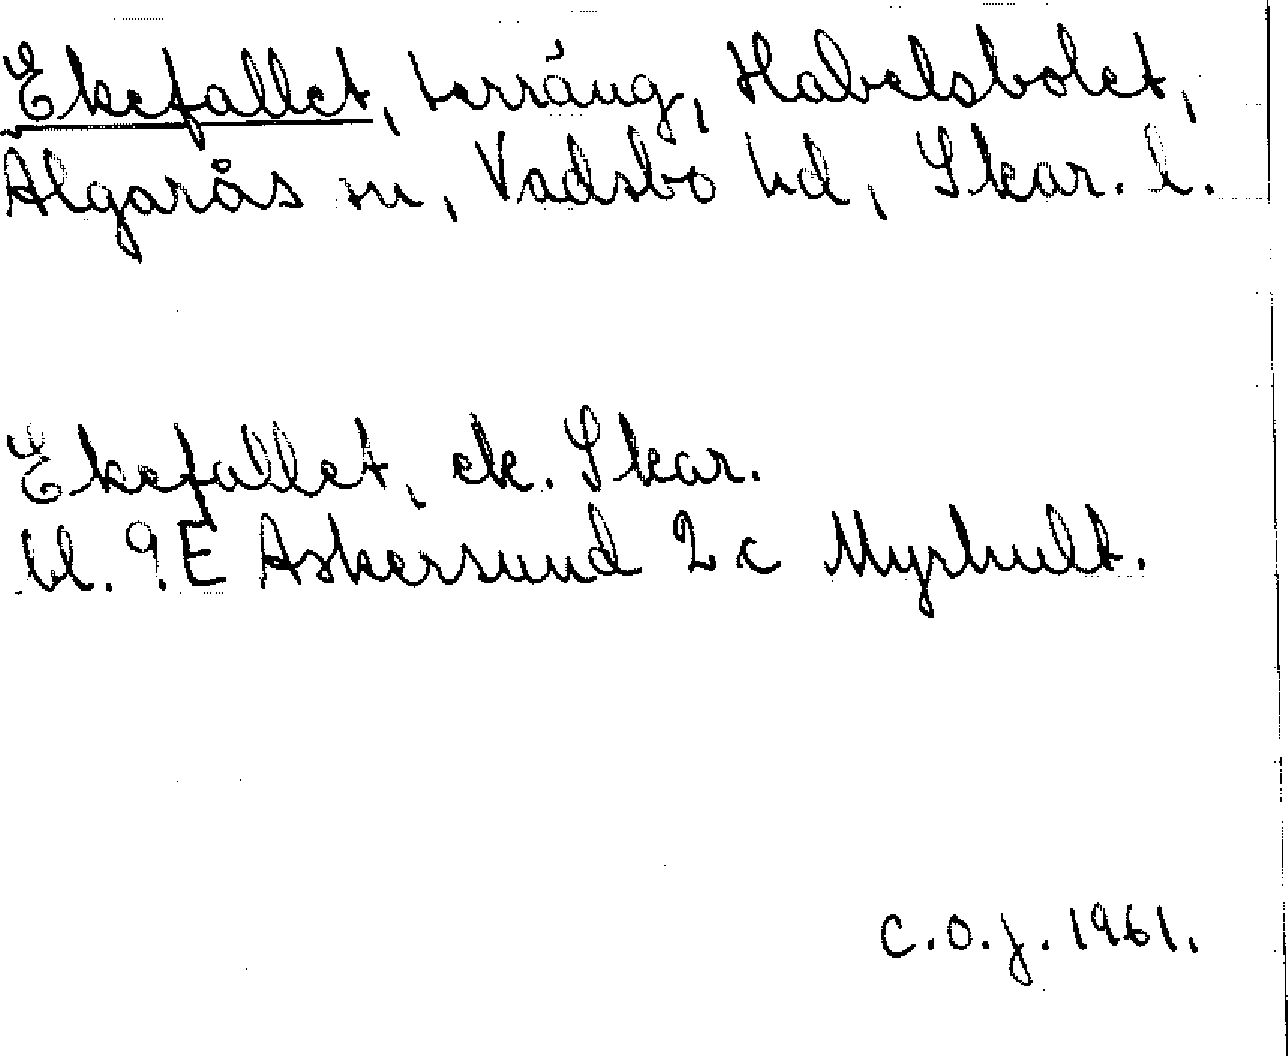 Ekefallet, terräng, Habelsbolet,
Älgarås sn, Vadsbo hd, Skar. l.
Ekefallet, ek. Skar.
bl. 9E Askersund 2c Myrhult.
C.O.J. 1961.